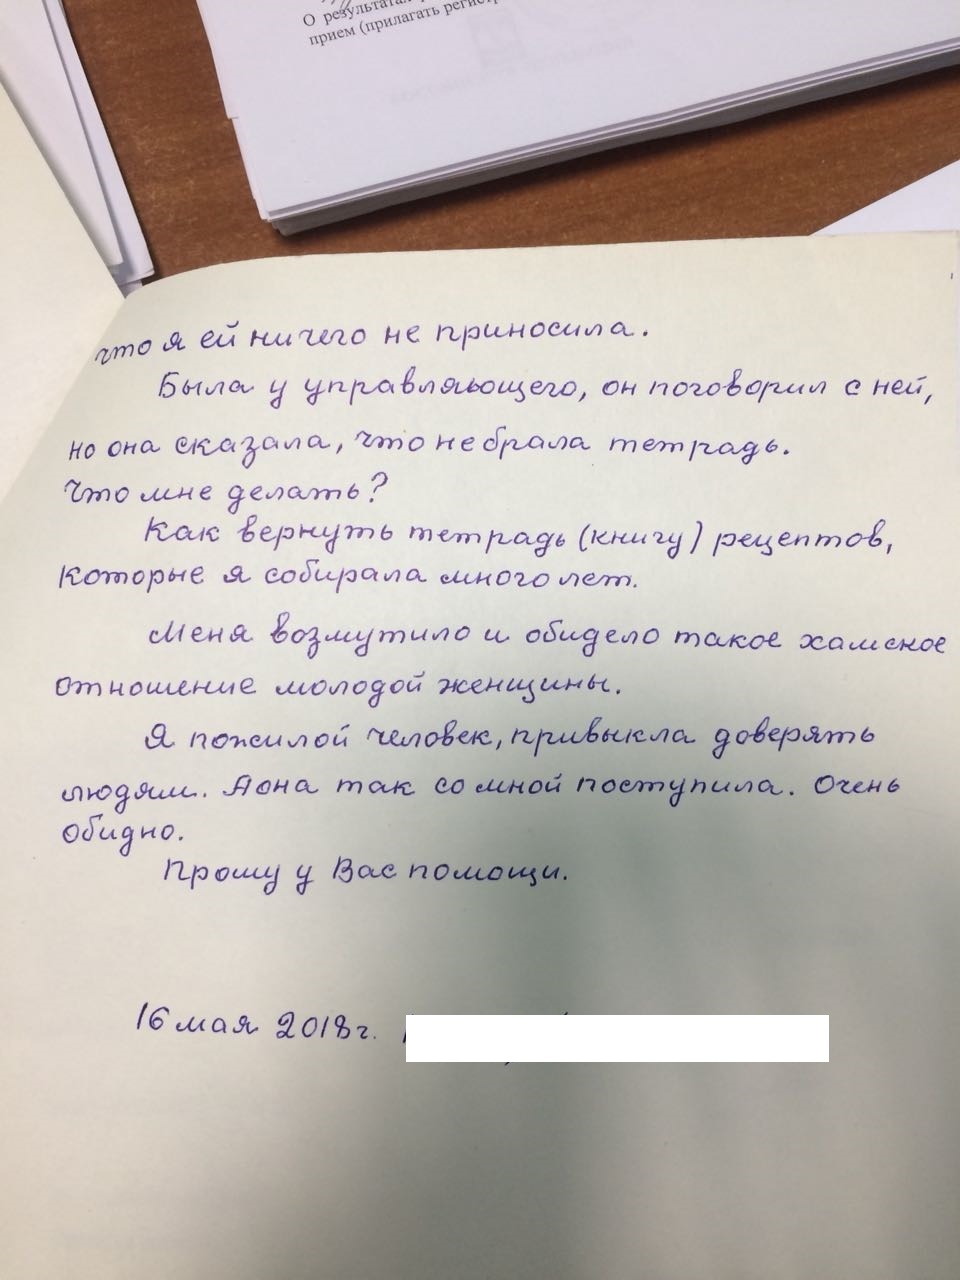 О результатах
прием (прилагать регистр
что я ей ничего не приносила.
Была у управляющего, он поговорил с ней,
но она сказала, что не брала тетрадь.
Что мне делать?
Как вернуть тетрадь (книгу) рецептов,
которые я собирала много лет.
Меня возмутило и обидело такое хамское
отношение молодой женщины.
Я пожилой человек, привыкла доверять
людям. А она так со мной поступила. Очень
обидно.
Прошу у Вас помощи.
16 мая 2018г.